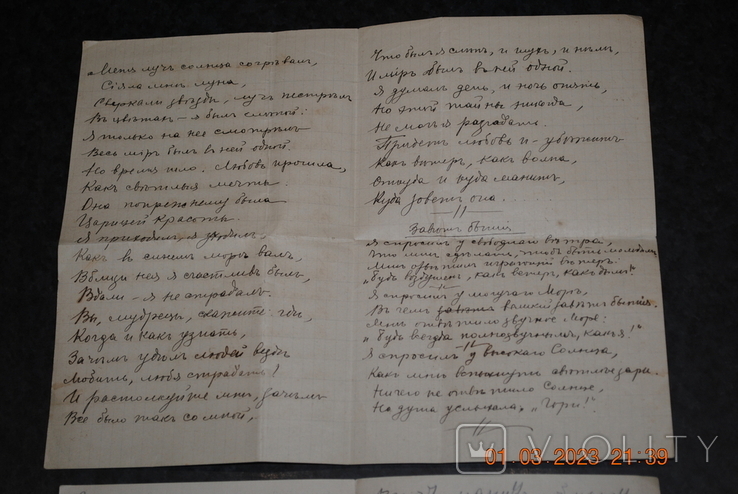 Меня лучъ солнца согрѣвалъ,
Сіяла мнѣ луна,
Сверкали звѣзды, лучъ
Въ цвѣтахъ – я былъ слѣпой:
Я только на нее смотрѣлъ
Весь міръ былъ въ ней одной.
Но время шло. Любовь прошла,
Какъ свѣтлыя мечты.
Она попрежнему была
Царицей красоты.
Я приходилъ, я уходилъ,
Какъ въ синемъ морѣ валъ,
Вблизи нея я счастливъ былъ,
Вдали – я не страдалъ.
Вы, мудрецы, скажите гдѣ,
Когда и какъ узнать,
Зачѣмъ удѣлъ людей вездѣ
Любить, любя страдать!
И растолкуйте мнѣ, зачѣмъ
Все было такъ со мной,
Что былъ я слѣпъ, и глухъ, и нѣмъ,
И міръ былъ въ ней одной.
Я думалъ день, и ночь опять,
Но этой тайны никогда,
Не могъ я разгадать.
Придетъ любовь и –
Какъ вѣтеръ, какъ волна,
Откуда и куда манитъ,
Куда зоветъ она.
Завѣтъ бытія
Я спросилъ у свободнаго вѣтра,
Что мнѣ сдѣлать, чтобъ быть молодымъ
Мнѣ отвѣтилъ играющій вѣтеръ:
"Будь воздушен, какъ ветеръ, какъ дымъ!"
Я спросилъ у могучаго Моря,
Въ чемъ великій завѣтъ бытія.
Мнѣ отвѣтило звучное Море:
"Будь всегда полнозвучнымъ, какъ я!"
Я спросилъ у высокаго Солнца,
Какъ мнѣ вспыхнуть свѣтлѣе зари.
Ничего не отвѣтило Солнце,
Но душа услыхала: "Гори!"
VIOLITY
01.03.2023 21:39